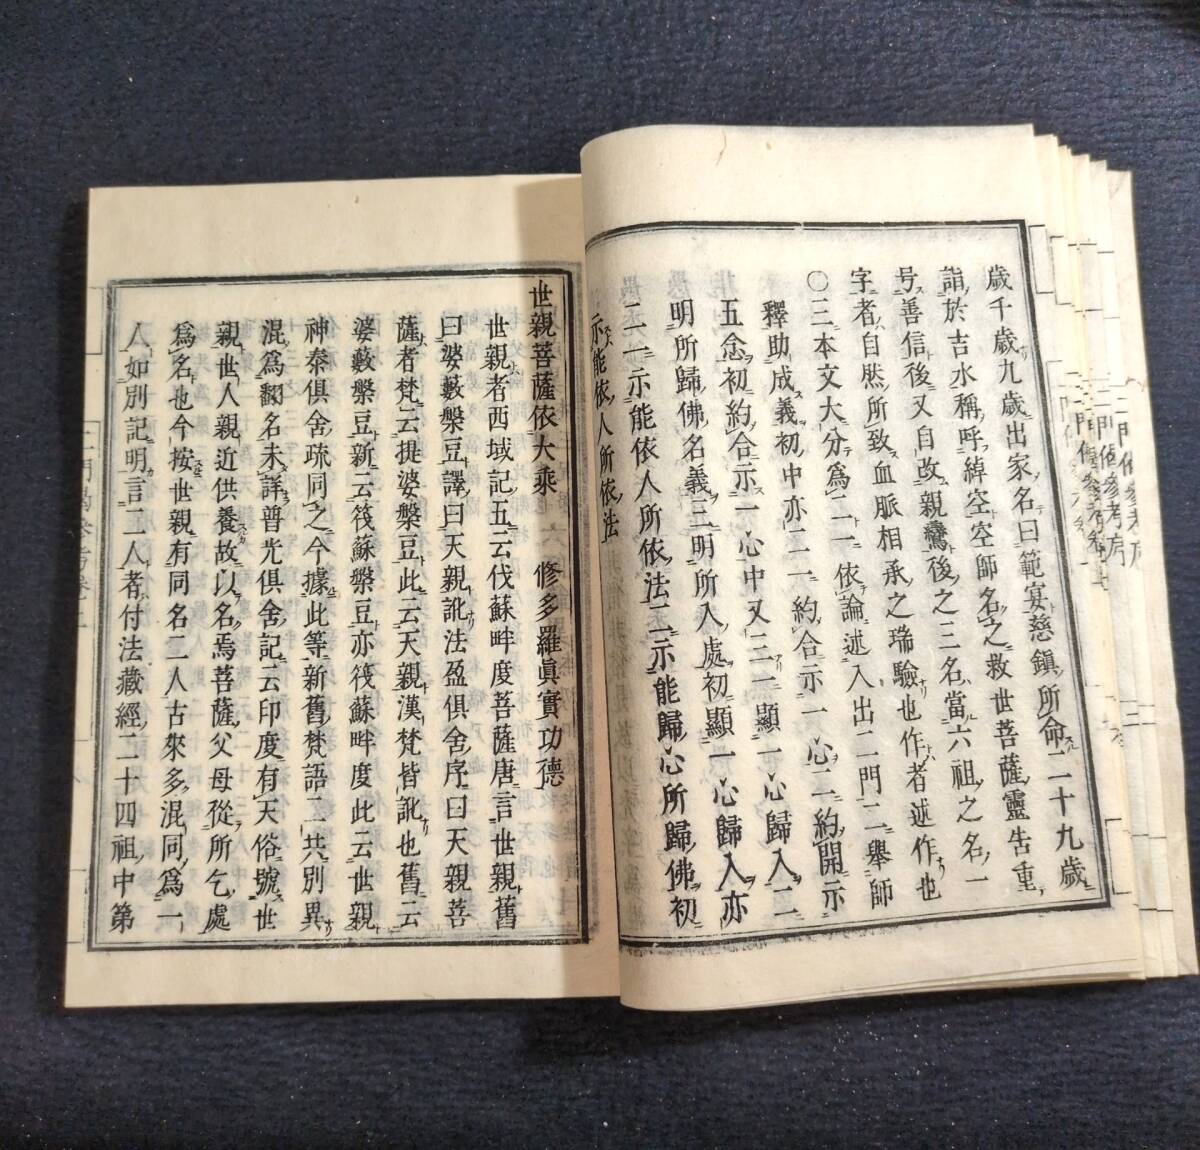 歳千歳九歳出家名曰範宴慈鎮所命二十九歳
詣於吉水稱呼綽空空師名之救世菩薩靈告重
号善信後又自改親鸞後之三名當六祖之名一
字者自然所致血脈相承之瑞驗也作者述作也
○三本文大分爲二一依論述入出二門二舉師
釋助成義初中亦二一約合示一心二約開示
五念初約合示一心中又三一顯一心歸入二
明所歸佛名義三明所入處初顯一心歸入亦
二一示能依人所依法二示能歸心所歸佛初
示能依人所依法
世親菩薩依大乘 修多羅眞實功德
世親者西域記五云伐蘇畔度菩薩唐言世親舊
曰婆藪槃豆譯曰天親訛法盈倶舍序曰天親菩
薩者梵云提婆槃豆此云天親漢梵皆訛也舊云
婆藪槃豆新云筏蘇槃豆亦筏蘇畔度此云世親
神泰倶舍疏同之今據此等新舊梵語二共別異
混爲翻名未詳普光倶舍記云印度有天俗號世
親世人親近供養故以名焉菩薩父母從所乞處
爲名也今按世親有同名二人古來多混同爲一
人如別記明言二人者付法藏經二十四祖中第